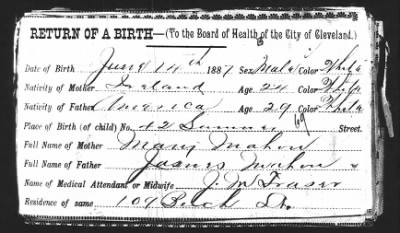 RETURN OF A BIRTH—(To the Board of Health of the City of Cleveland.)
Date of Birth June 14th 1887 Sex Male Color White
Nativity of Mother Ireland Age 24 Color White
Nativity of Father America Age 29 Color White
Place of Birth (of child) No. 42 Sumner Street.
Full Name of Mother Mary Mahon
Full Name of Father James Mahon
Name of Medical Attendant or Midwife J. M. Fraser
Residence of same 109 St.